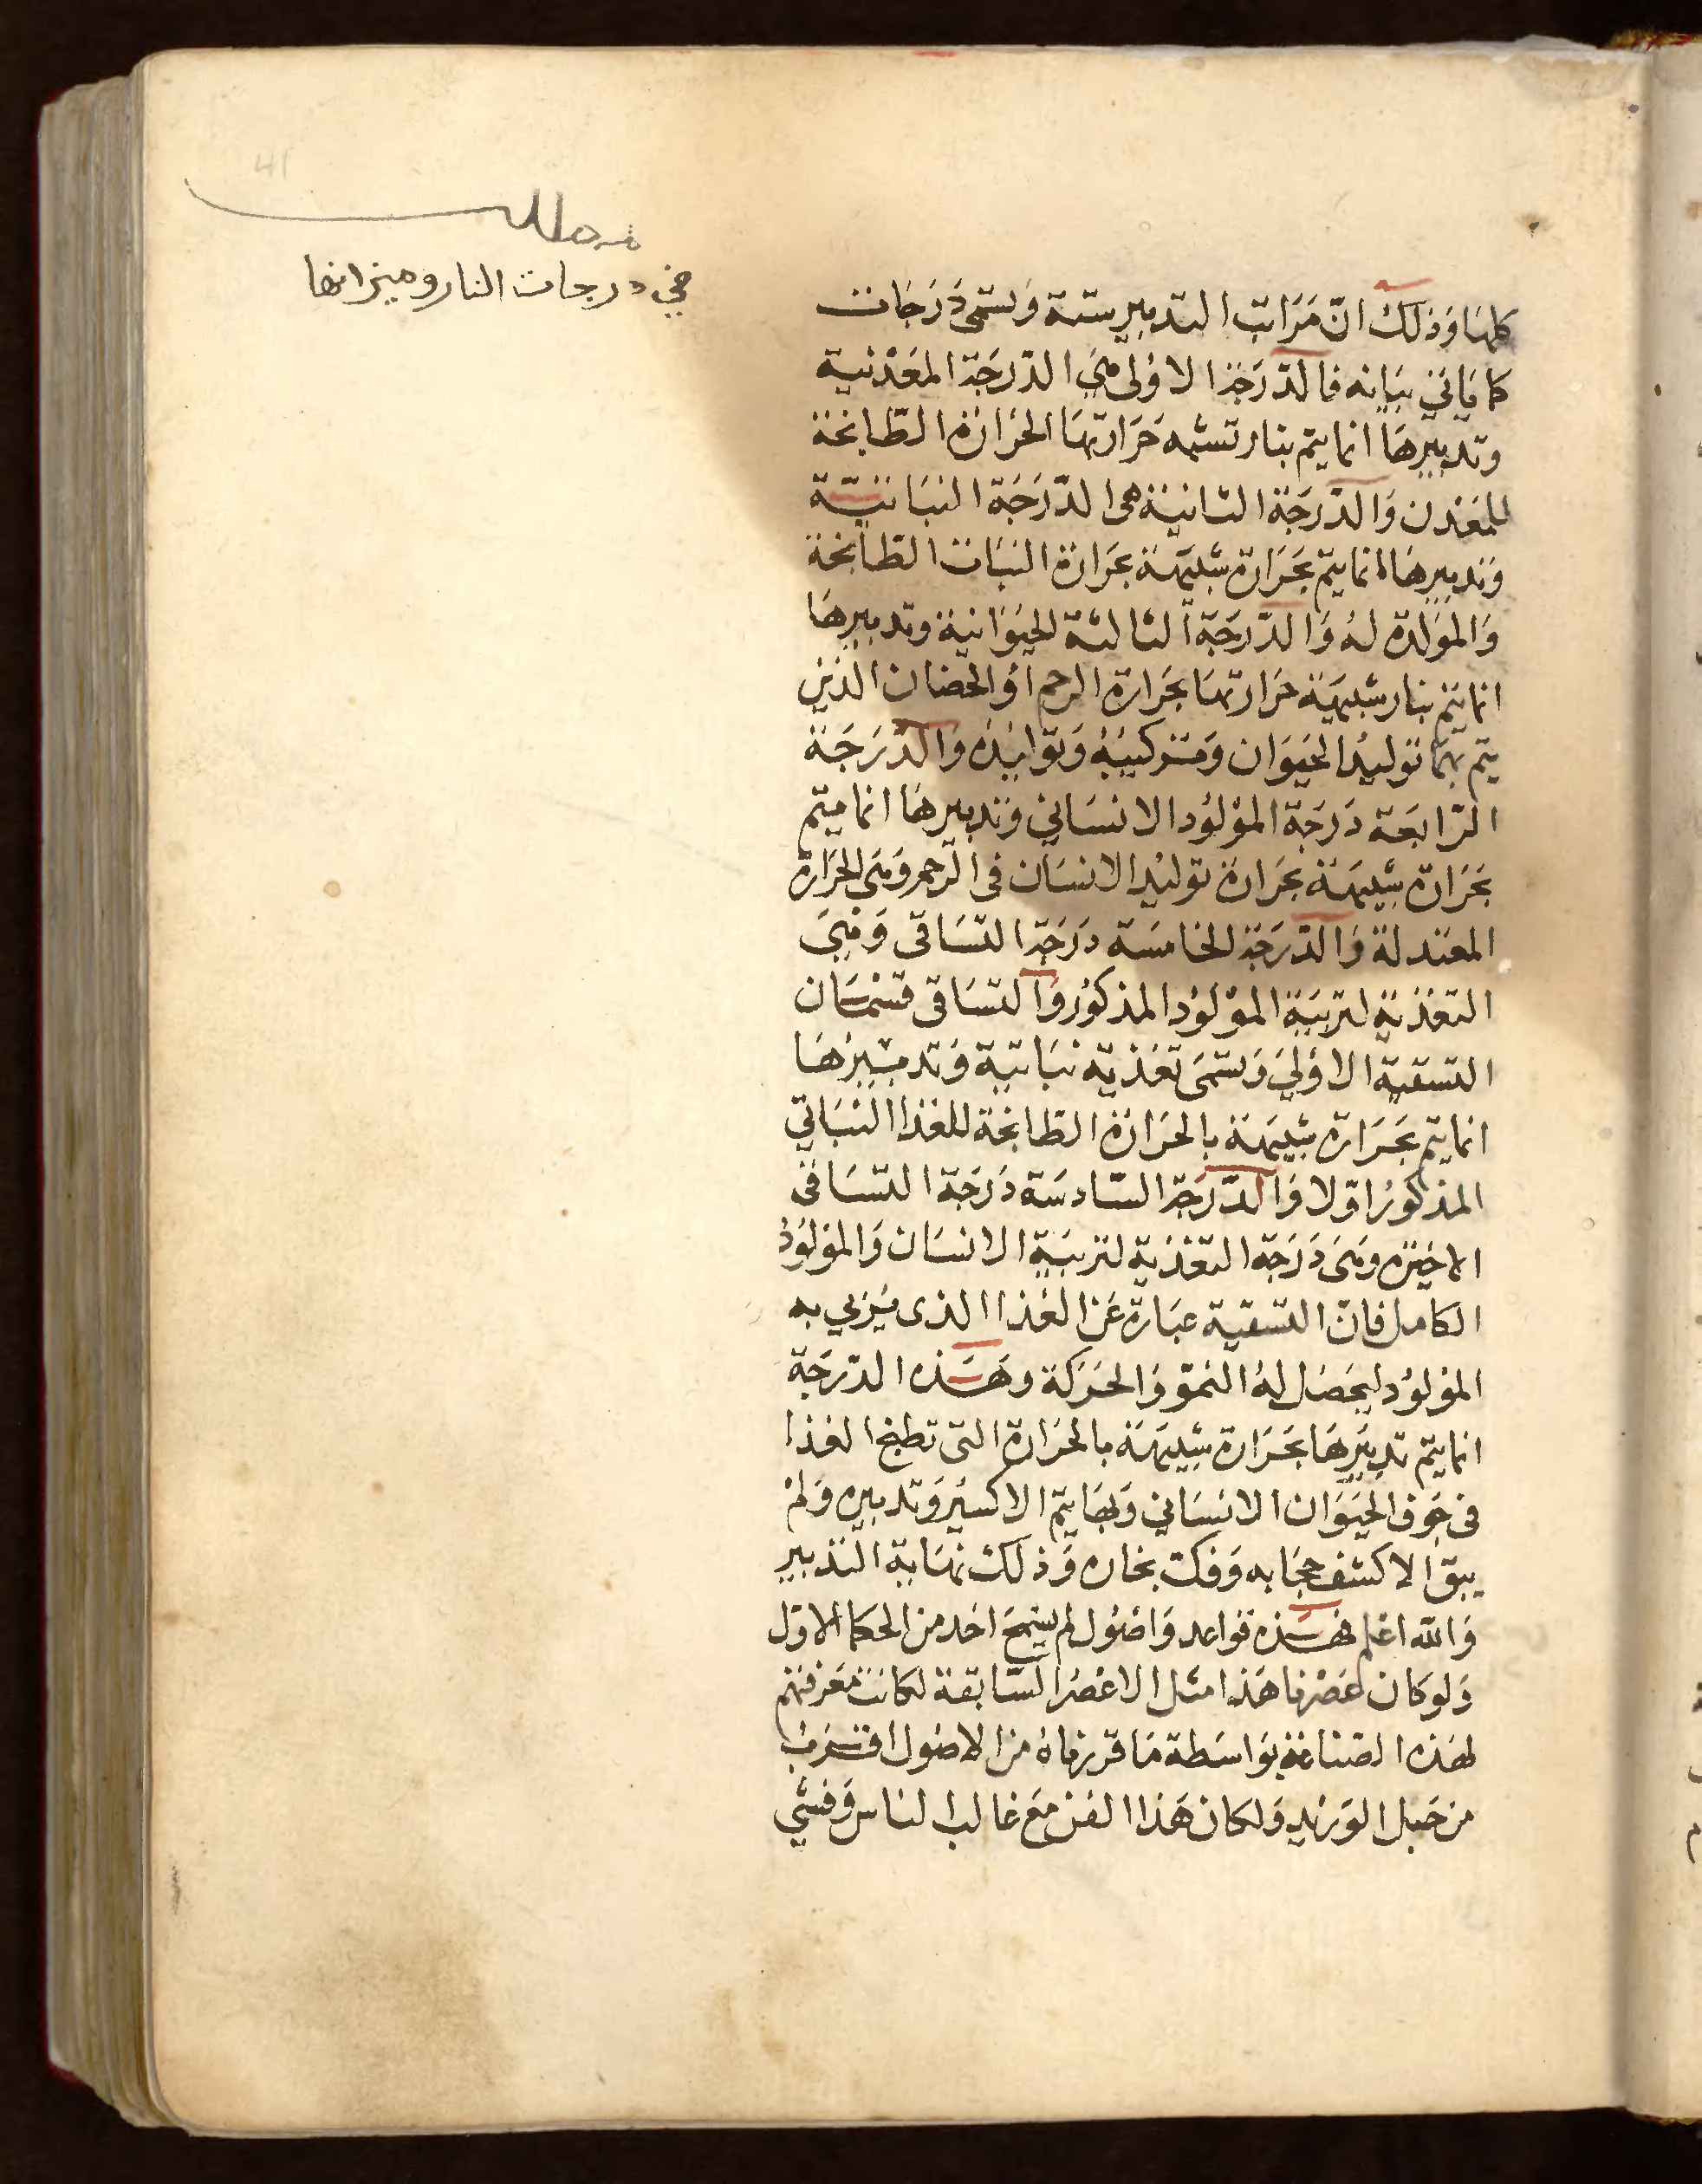 41
مطلب
في درجات النار وميزانها
كلها وَذلك انّ مَرَاتب التدبير ستة وَتسمى دَرَجَات
كما يأتي بيَانه فالدّرَجَة الاوُلى هيَ الدّرَجَة المعَدْنية
وتدبيرهَا انما يتم بنار تشبه حَرَارتهَا الحَرَارَة الطّابخة
للمَعْدن وَالدّرَجَة الثانية هى الدّرَجَة النبَاتيّة
وَتدبيرهَا انما يتم بحَرَارَة شبيهَة بحَرَارَة النبَات الطّابخة
وَالموَلدة لهُ وَالدّرجَة الثالثة الحيَوَانية وتدبيرهَا
انما يتم بنار شبيهَة حَرَارتهَا بحَرَارة الرحم اوُ الحضَان الذَين
يتم بهمَا توليدُ الحيَوَان وَتركيبُهُ وَتوَاليدُه وَالدّرَجَة
الرّابعَة دَرَجَة الموْلوُد الانسَاني وَتدبيرهَا انما يتم
بحَرَارَة شبيهَة بحَرَارَة توليْد الانسَان فى الرّحم وَهىَ الحَرَارة
المعتدلة وَالدّرَجَة الخامسَة دَرَجَة التسَاقى وَهيَ
التغْذية لتربيَة الموْلوُد المذكوُر وَالتسَاقى قسْمَان
التسقية الاوُلىَ وَتسمىَ تغذية نبَاتية وَتدبيرُهَا
انما يتم بحَرَارة شبيهَة بالحرَارَة الطابخة للغذا النبَاتي
المذكوُر اوّلا وَالدّرَجَة السّادسَة دَرَجَة التسَاقى
الاخيرَه وَهىَ دَرَجَة التغْذية لتربيَة الانسَان وَالموْلوُد
الكامل فانّ التسقية عبَارة عَن الغذا الذى يرَبي به
الموْلوُد ليحَصل لهُ النموّ وَالحرَكة وهَذه الدّرَجَة
انما يتم تدبيرهَا بحَرَارة شبيهَة بالحَرَارة التى تطبخ الغذا
فى جَوف الحيَوَان الانسَاني وَبهَا يتم الاكسيْر وَتدبيره وَلمْ
يبق الا كشف حجَابه وَفك بخاره وَذلك نهَاية التدبير
وَالله اعْلم فهَذه قوَاعد وَاصُول لم يسْمحَ احَد من الحكما الاوّل
وَلو كان عَصْرنا هَذا مثل الاعْصر السّابقة لكانت مَعْرفتهم
لهَذه الصناعَة بوَاسَطة مَا قررناهُ من الاصُول اقرَبُ
من حَبل الوَريد وَلكان هَذا الفن مَع غالب الناس وَفشي